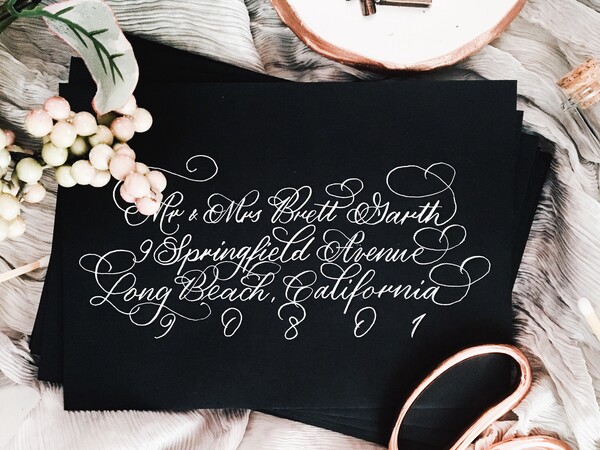 Mr & Mrs Brett Garth
9 Springfield Avenue
Long Beach, California
90801